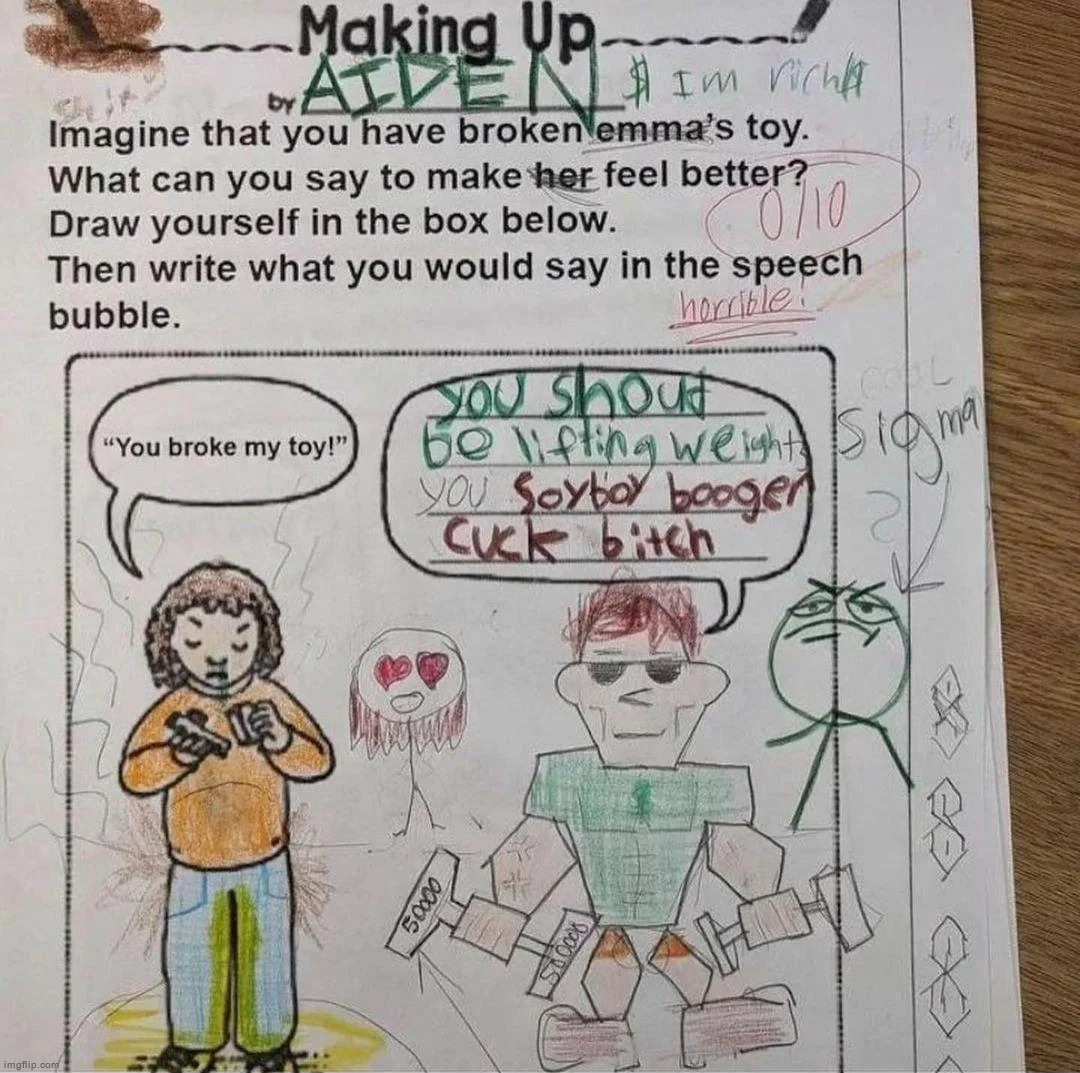 Making Up
by AIDEN $ Im rich $
Imagine that you have broken emma's toy.
What can you say to make her feel better?
0/10
Draw yourself in the box below.
Then write what you would say in the speech
bubble.
horrible!
COOL
Sigma
"You broke my toy!"
you shoud
be lifting weights
you Soyboy booger
Cuck bitch
50000
imgflip.com